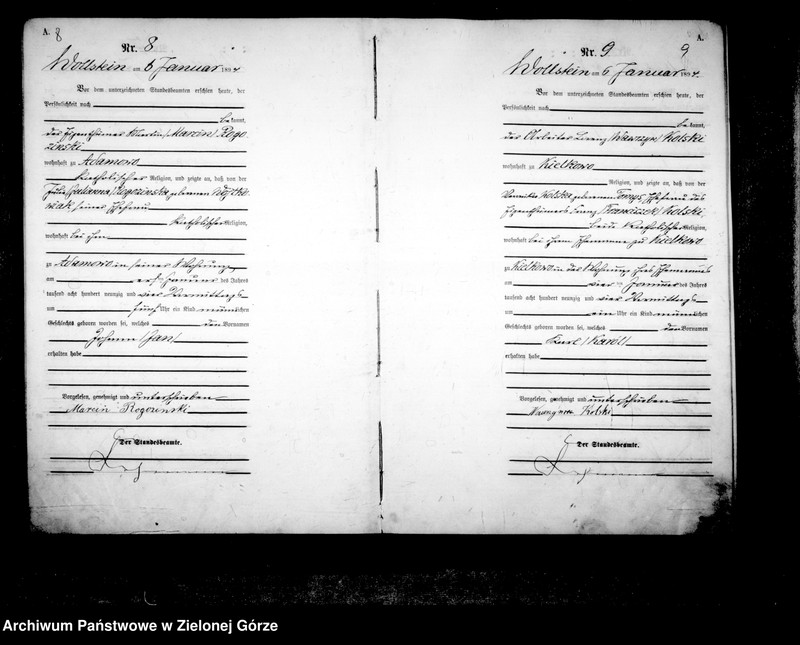 A. 8
Nr. 8
Wollstein am 6 Januar 1894
Vor dem unterzeichneten Standesbeamten erschien heute, der
Persönlichkeit nach
bekannt,
der Eigenthümer Martin (Marcin) Rogo
zinski
wohnhaft zu Adamowo
katholischer Religion, und zeigte an, daß von der
Julie (Julianna) Rogozinska geborenen
seiner Ehefrau
katholischer Religion,
wohnhaft bei ihm
zu Adamowo in seiner Wohnung
am ersten Januar des Jahres
tausend acht hundert neunzig und vier Vormittags
um fünf Uhr ein Kind männlichen
Geschlechts geboren worden sei, welches den Vornamen
Johann (Jan)
erhalten habe
Vorgelesen, genehmigt und unterschrieben
Marcin Rogozinski
Der Standesbeamte.
A.
9
Nr. 9
Wollstein am 6 Januar 1894.
Vor dem unterzeichneten Standesbeamten erschien heute, der
Persönlichkeit nach
bekannt,
der Arbeiter Lorenz (Wawrzyn) Kolski
wohnhaft zu Kielkowo
Religion, und zeigte an, daß von der
Kolska geborenen Ehefrau des
Eigenthümers Franz (Franciszek) Kolski,
beide katholischer Religion,
wohnhaft bei ihrem Ehemanne zu Kielkowo
zu Kielkowo in der Wohnung ihres Ehemannes
am vier Januar des Jahres
tausend acht hundert neunzig und vier Vormittags
um ein Uhr ein Kind männlichen
Geschlechts geboren worden sei, welches den Vornamen
Karl (Karól)
erhalten habe
Vorgelesen, genehmigt und unterschrieben
Kolski
Der Standesbeamte.
Archiwum Państwowe w Zielonej Górze